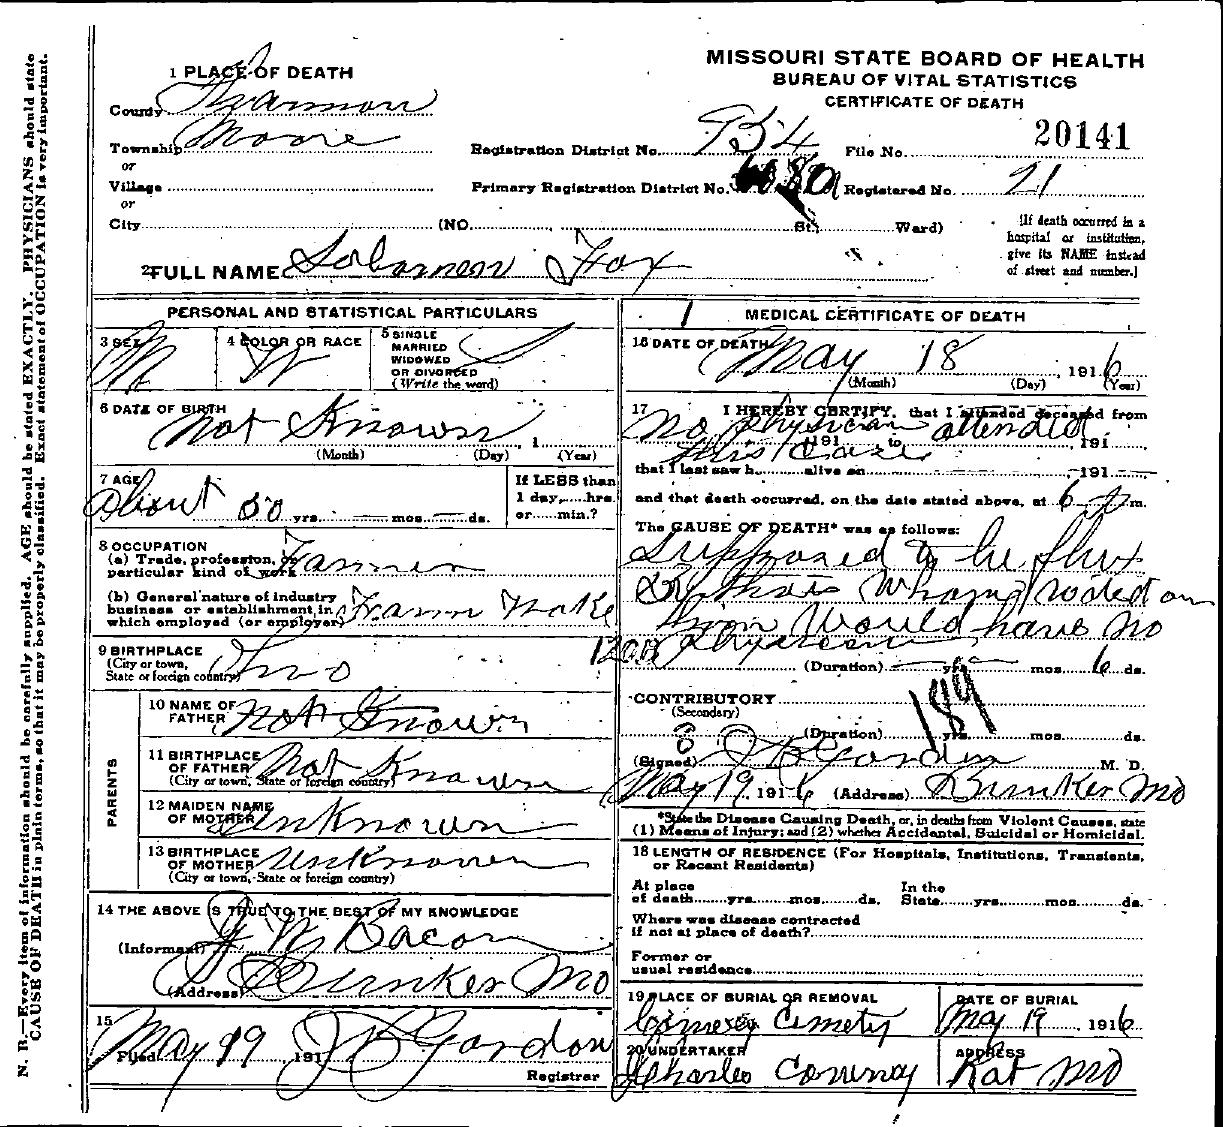 MISSOURI STATE BOARD OF HEALTH
BUREAU OF VITAL STATISTICS
CERTIFICATE OF DEATH
1 PLACE OF DEATH
County Shannon
Township Moore
or
Village
or
City (NO. St. Ward)
Registration District No. 954 File No. 20141
Primary Registration District No. Registered No. 21
[If death occurred in a
hospital or institution,
give its NAME instead
of street and number.]
2 FULL NAME Solomen Fox
PERSONAL AND STATISTICAL PARTICULARS
3 SEX M
4 COLOR OR RACE W
5 SINGLE
MARRIED
WIDOWED
OR DIVORCED
(Write the word) S
6 DATE OF BIRTH
Not Known , 1
(Month) (Day) (Year)
7 AGE
About 50 yrs. — mos. — ds.
If LESS than
1 day,.....hrs.
or.....min.?
8 OCCUPATION
(a) Trade, profession, or
particular kind of work Farmer
(b) General nature of industry
business or establishment in
which employed (or employer) Farm
9 BIRTHPLACE
(City or town,
State or foreign country) Mo
PARENTS
10 NAME OF
FATHER Not Known
11 BIRTHPLACE
OF FATHER
(City or town, State or foreign country) Not Known
12 MAIDEN NAME
OF MOTHER Unknown
13 BIRTHPLACE
OF MOTHER
(City or town, State or foreign country) Unknown
14 THE ABOVE IS TRUE TO THE BEST OF MY KNOWLEDGE
(Informant) J W Bacon
(Address) Bunker Mo
15
Filed May 19, 191 J B Gordon
Registrar
1 MEDICAL CERTIFICATE OF DEATH
16 DATE OF DEATH
May 18, 1916
(Month) (Day) (Year)
17 I HEREBY CERTIFY, that I attended deceased from
No physician attended
191 , to 191
this case
that I last saw h alive on — 191 —
and that death occurred, on the date stated above, at 6 m.
The CAUSE OF DEATH* was as follows:
Supposed to be flux
By thais Whom on
him Would have no
Physician
(Duration) — yrs. — mos. 6 ds.
CONTRIBUTORY
(Secondary)
189
(Duration) yrs. mos. ds.
(Signed) J B Gordon M. D.
May 19, 1916 (Address) Bunker Mo
*State the Disease Causing Death, or, in deaths from Violent Causes, state
(1) Means of Injury; and (2) whether Accidental, Suicidal or Homicidal.
18 LENGTH OF RESIDENCE (For Hospitals, Institutions, Transients,
or Recent Residents)
At place In the
of death yrs. mos. ds. State yrs. mos. ds.
Where was disease contracted
if not at place of death?
Former or
usual residence
19 PLACE OF BURIAL OR REMOVAL DATE OF BURIAL
May 19, 1916
20 UNDERTAKER ADDRESS
Charles Conway Rat Mo
N. B.—Every item of information should be carefully supplied. AGE should be stated EXACTLY. PHYSICIANS should state
CAUSE OF DEATH in plain terms, so that it may be properly classified. Exact statement of OCCUPATION is very important.